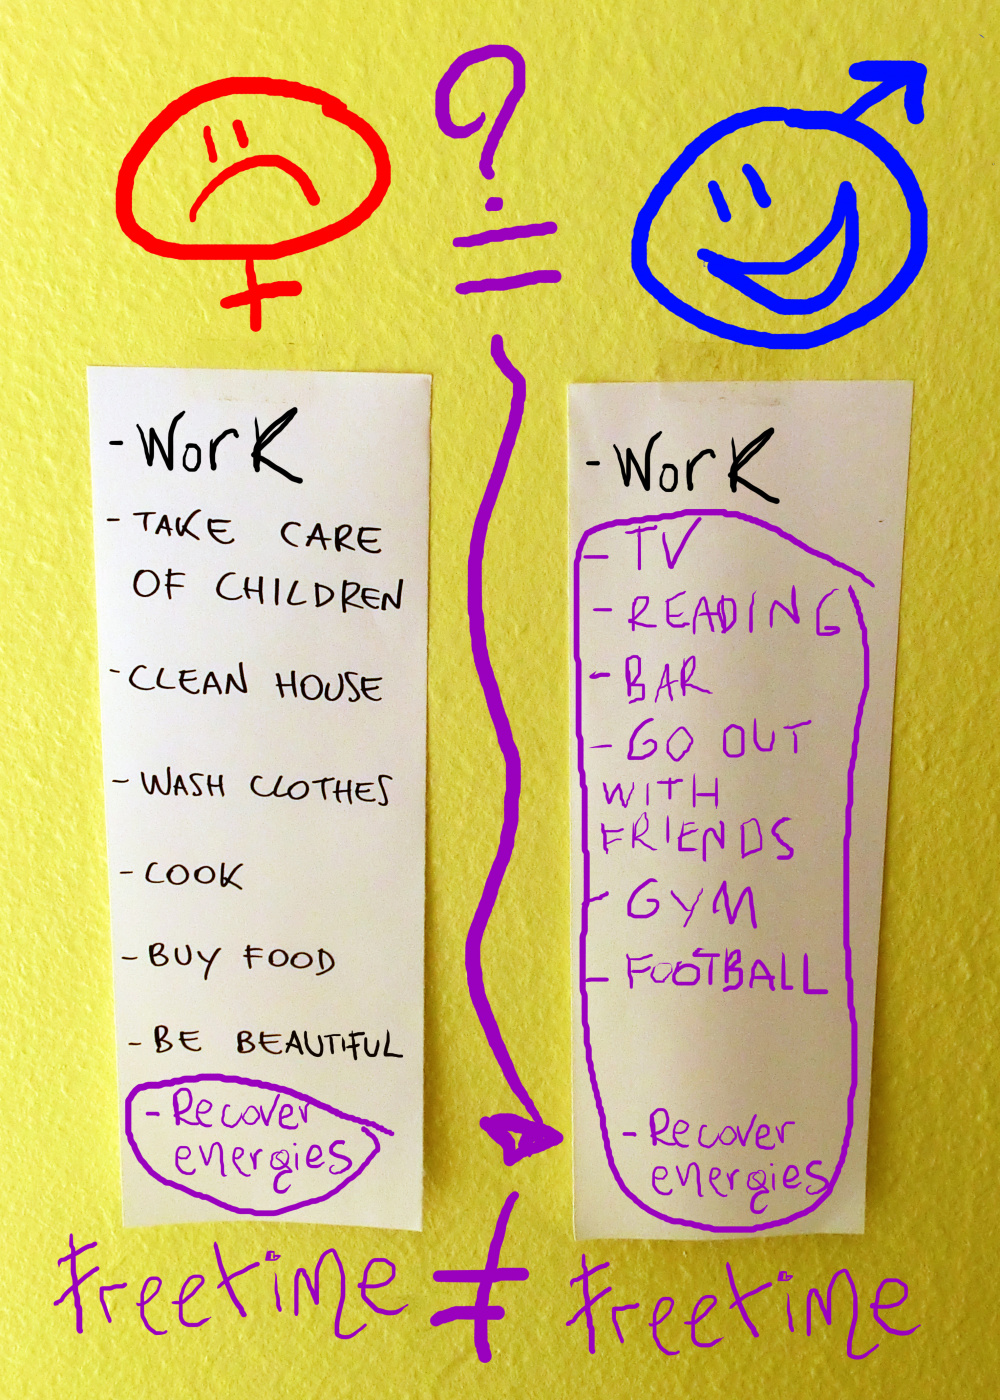 ? =
- Work
- TAKE CARE
OF CHILDREN
- CLEAN HOUSE
- WASH CLOTHES
- COOK
- BUY FOOD
- BE BEAUTIFUL
- Recover
energies
- Work
- TV
- READING
- BAR
- GO OUT
WITH
FRIENDS
- GYM
- FOOTBALL
- Recover
energies
Freetime ≠ Freetime